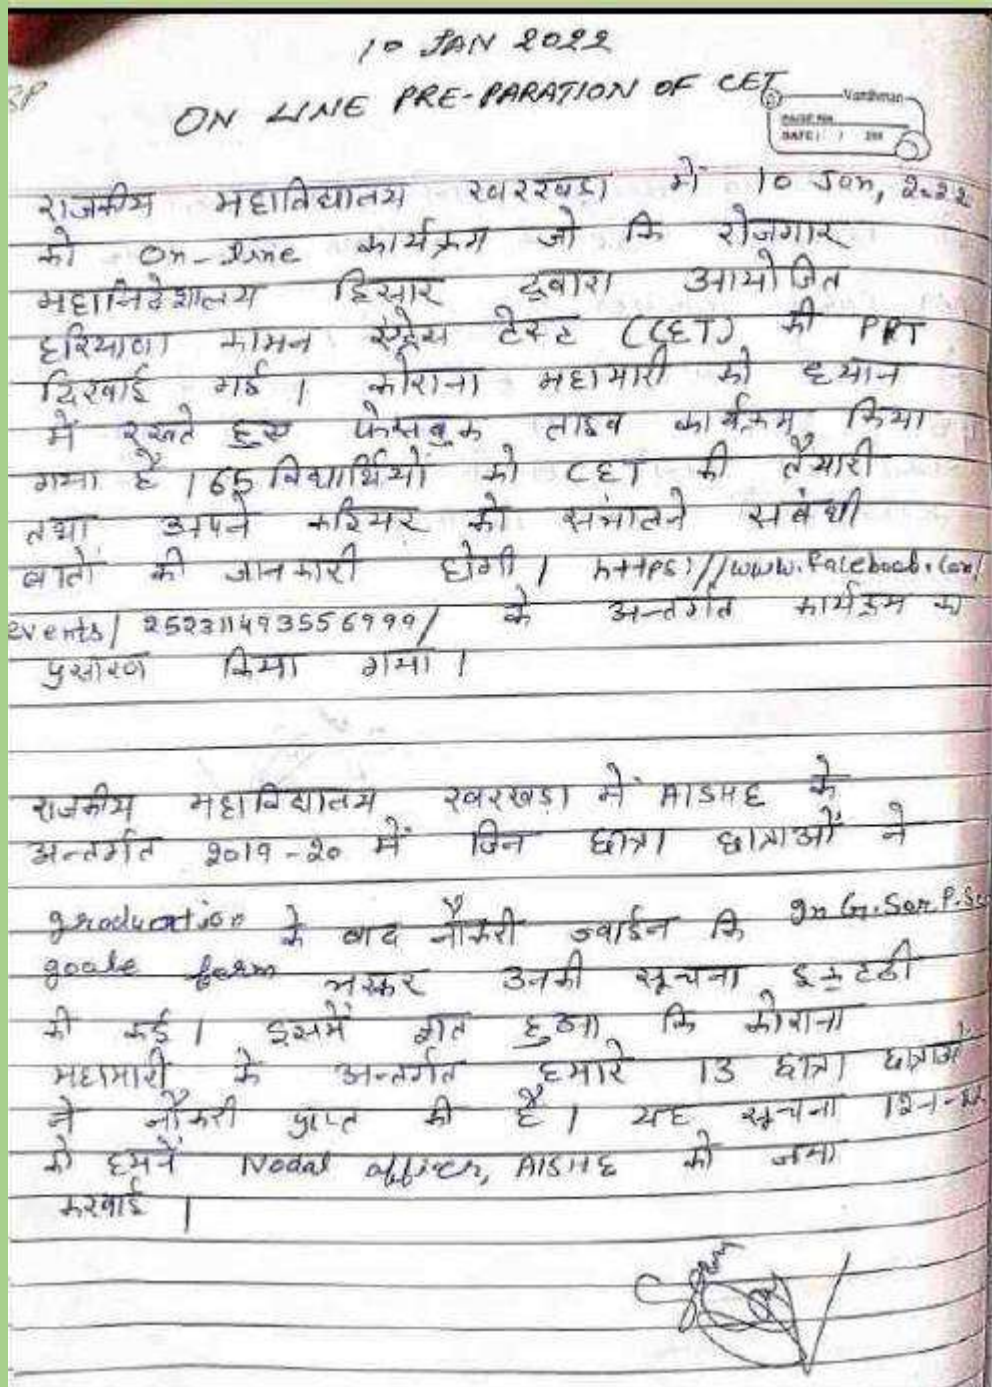 10 JAN 2022
ON LINE PRE-PARATION OF CET
Vardhman
PAGE NO.
DATE: / / 200
राजकीय महाविद्यालय खरखड़ा में 10 Jan, 2022
को On-line कार्यक्रम जो कि रोजगार
महानिदेशालय हिसार द्वारा आयोजित
हरियाणा कामन एंट्रेंस टेस्ट (CET) की PPT
दिखाई गई । कोराना महामारी को ध्यान
में रखते हुए फेसबुक लाइव कार्यक्रम किया
गया है । 65 विद्यार्थियों को CET की तैयारी
तथा अपने करियर को संभालने संबंधी
बातों की जानकारी होगी । https://www.facebook.com/
events/ 252311493556999/ के अन्तर्गत कार्यक्रम का
प्रसारण किया गया ।
राजकीय महाविद्यालय खरखड़ा में AISHE के
अन्तर्गत 2019-20 में जिन छात्रा छात्राओं ने
graduation के बाद नौकरी ज्वाईन कि
goole form भरकर उनकी सूचना इकटठी
की कई । इसमें ज्ञात हुआ कि कोराना
महामारी के अन्तर्गत हमारे 13 छात्रा छात्राओं
ने नौकरी प्राप्त की है । यह सूचना 12-1-22
को हमनें Nodal officer, AISHE को जमा
करवाई ।